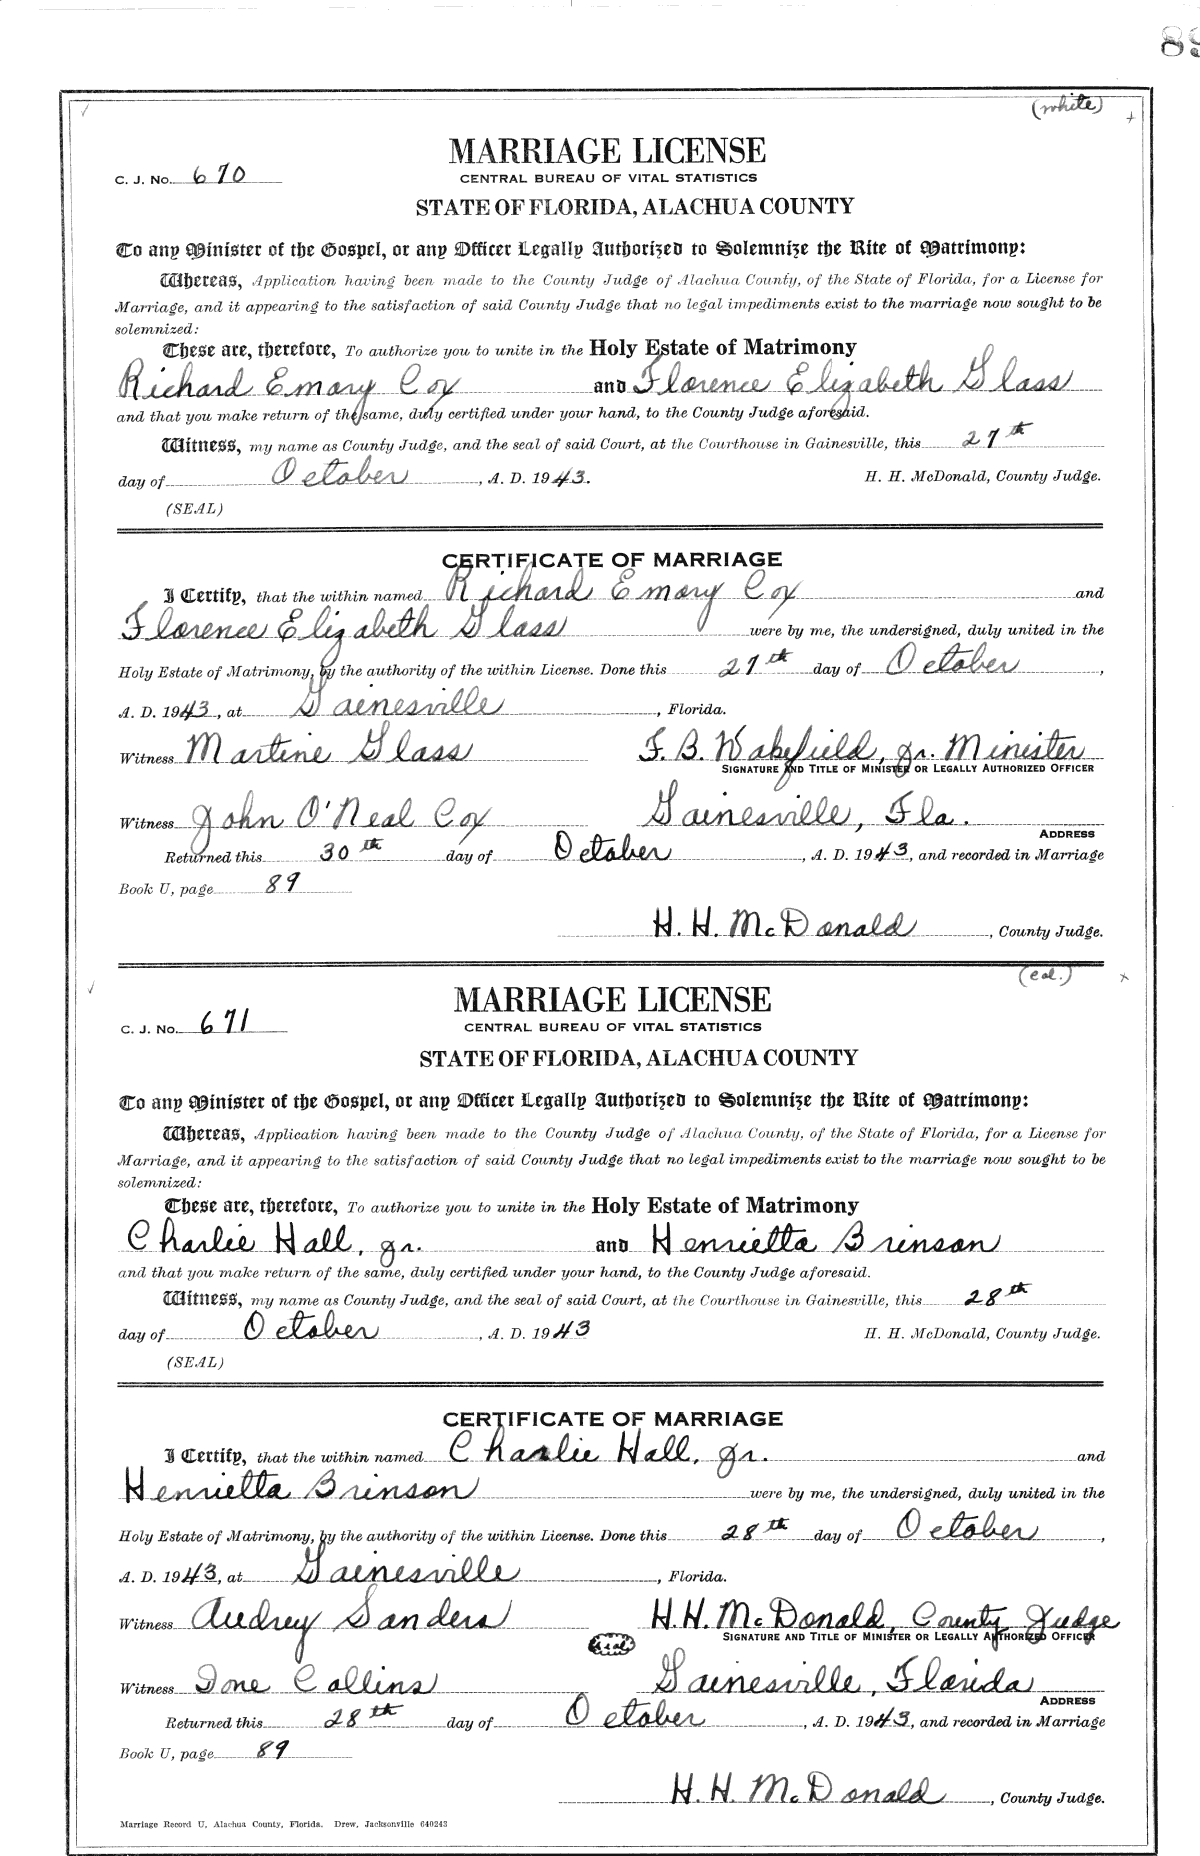 89
(white)
MARRIAGE LICENSE
C. J. No. 670
CENTRAL BUREAU OF VITAL STATISTICS
STATE OF FLORIDA, ALACHUA COUNTY
To any Minister of the Gospel, or any Officer Legally Authorized to Solemnize the Rite of Matrimony:
Whereas, Application having been made to the County Judge of Alachua County, of the State of Florida, for a License for
Marriage, and it appearing to the satisfaction of said County Judge that no legal impediments exist to the marriage now sought to be
solemnized:
These are, therefore, To authorize you to unite in the Holy Estate of Matrimony
Richard Emory Cox and Florence Elizabeth Glass
and that you make return of the same, duly certified under your hand, to the County Judge aforesaid.
Witness, my name as County Judge, and the seal of said Court, at the Courthouse in Gainesville, this 27th
day of October, A. D. 1943. H. H. McDonald, County Judge.
(SEAL)
CERTIFICATE OF MARRIAGE
I Certify, that the within named Richard Emory Cox and
Florence Elizabeth Glass were by me, the undersigned, duly united in the
Holy Estate of Matrimony, by the authority of the within License. Done this 27th day of October,
A. D. 1943, at Gainesville, Florida.
Witness Martine Glass F. B. Wakefield, Jr. Minister
SIGNATURE AND TITLE OF MINISTER OR LEGALLY AUTHORIZED OFFICER
Witness John O'Neal Cox Gainesville, Fla.
ADDRESS
Returned this 30th day of October, A. D. 1943, and recorded in Marriage
Book U, page 89
H. H. McDonald, County Judge.
(col.)
MARRIAGE LICENSE
C. J. No. 671
CENTRAL BUREAU OF VITAL STATISTICS
STATE OF FLORIDA, ALACHUA COUNTY
To any Minister of the Gospel, or any Officer Legally Authorized to Solemnize the Rite of Matrimony:
Whereas, Application having been made to the County Judge of Alachua County, of the State of Florida, for a License for
Marriage, and it appearing to the satisfaction of said County Judge that no legal impediments exist to the marriage now sought to be
solemnized:
These are, therefore, To authorize you to unite in the Holy Estate of Matrimony
Charlie Hall, Jr. and Henrietta Brinson
and that you make return of the same, duly certified under your hand, to the County Judge aforesaid.
Witness, my name as County Judge, and the seal of said Court, at the Courthouse in Gainesville, this 28th
day of October, A. D. 1943 H. H. McDonald, County Judge.
(SEAL)
CERTIFICATE OF MARRIAGE
I Certify, that the within named Charlie Hall, Jr. and
Henrietta Brinson were by me, the undersigned, duly united in the
Holy Estate of Matrimony, by the authority of the within License. Done this 28th day of October,
A. D. 1943, at Gainesville, Florida.
Witness Audrey Sanders H. H. McDonald, County Judge
SIGNATURE AND TITLE OF MINISTER OR LEGALLY AUTHORIZED OFFICER
Seal
Witness Ione Collins Gainesville, Florida
ADDRESS
Returned this 28th day of October, A. D. 1943, and recorded in Marriage
Book U, page 89
H. H. McDonald, County Judge.
Marriage Record U, Alachua County, Florida. Drew, Jacksonville 640243